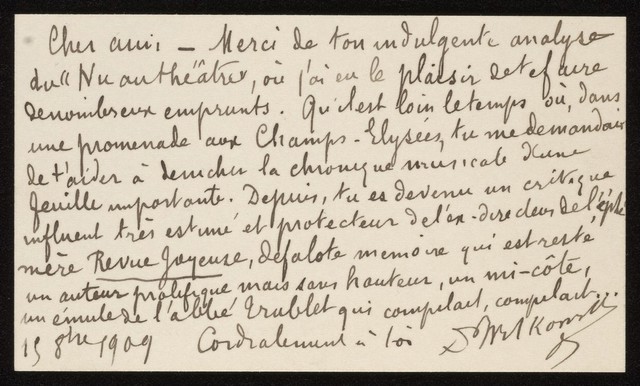 Cher ami – Merci de ton indulgente analyse
du "Nu au théâtre", où j'ai eu le plaisir de te faire
de nombreux emprunts. Qu'il est loin le temps où, dans
une promenade aux Champs-Elysées, tu me demandais
de t'aider à denicher la chronique musicale d'une
feuille importante. Depuis, tu es devenu un critique
influent très estimé et protecteur de l'ex-directeur de l'éphé
mère Revue Joyeuse, de falote memoire qui est resté
un auteur prolifique mais sans hauteur, un mi-côte,
un émule de l'abbé Trublet qui compilait, compilait...
15 8bre 1909 Cordialement à toi